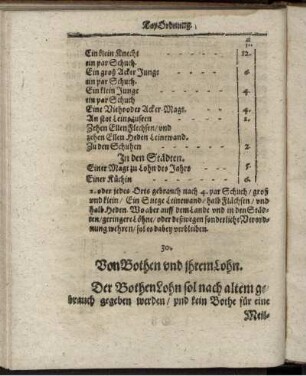 Tax Ordnung.
Ein klein Knecht - - - - - 12.
ein par Schuch.
Ein groß Acker Junge - - - - - 6
ein par Schuch.
Ein klein Junge - - - - - 4.
ein par Schuch
Eine Viehe oder Acker-Magt. - - - 4.
An stat Leinzuseen - - - - - 2.
Zehen Ellen Flechsen/ und
zehen Ellen Heden Leinewand.
Zu den Schuhen - - - - - 2
In den Städten.
Einer Magt zu Lohn des Jahrs - - - 5
Einer Küchin - - - - - 6
2. oder jedes Orts gebrauch nach 4. par Schuch/ groß
und klein/ Ein Stiege Leinewand/ halb Flächsen/ und
halb Heden. Wo aber auff dem Lande und in den Städ-
ten/ geringere Löhne/ oder desfwegen sonderliche Verord-
nung wehren/ sol es dabey verbleiben.
30.
Von Bothen und ihrem Lohn.
Der Bothen Lohn sol nach altem ge-
brauch gegeben werden/ und kein Bothe für eine
Meil-